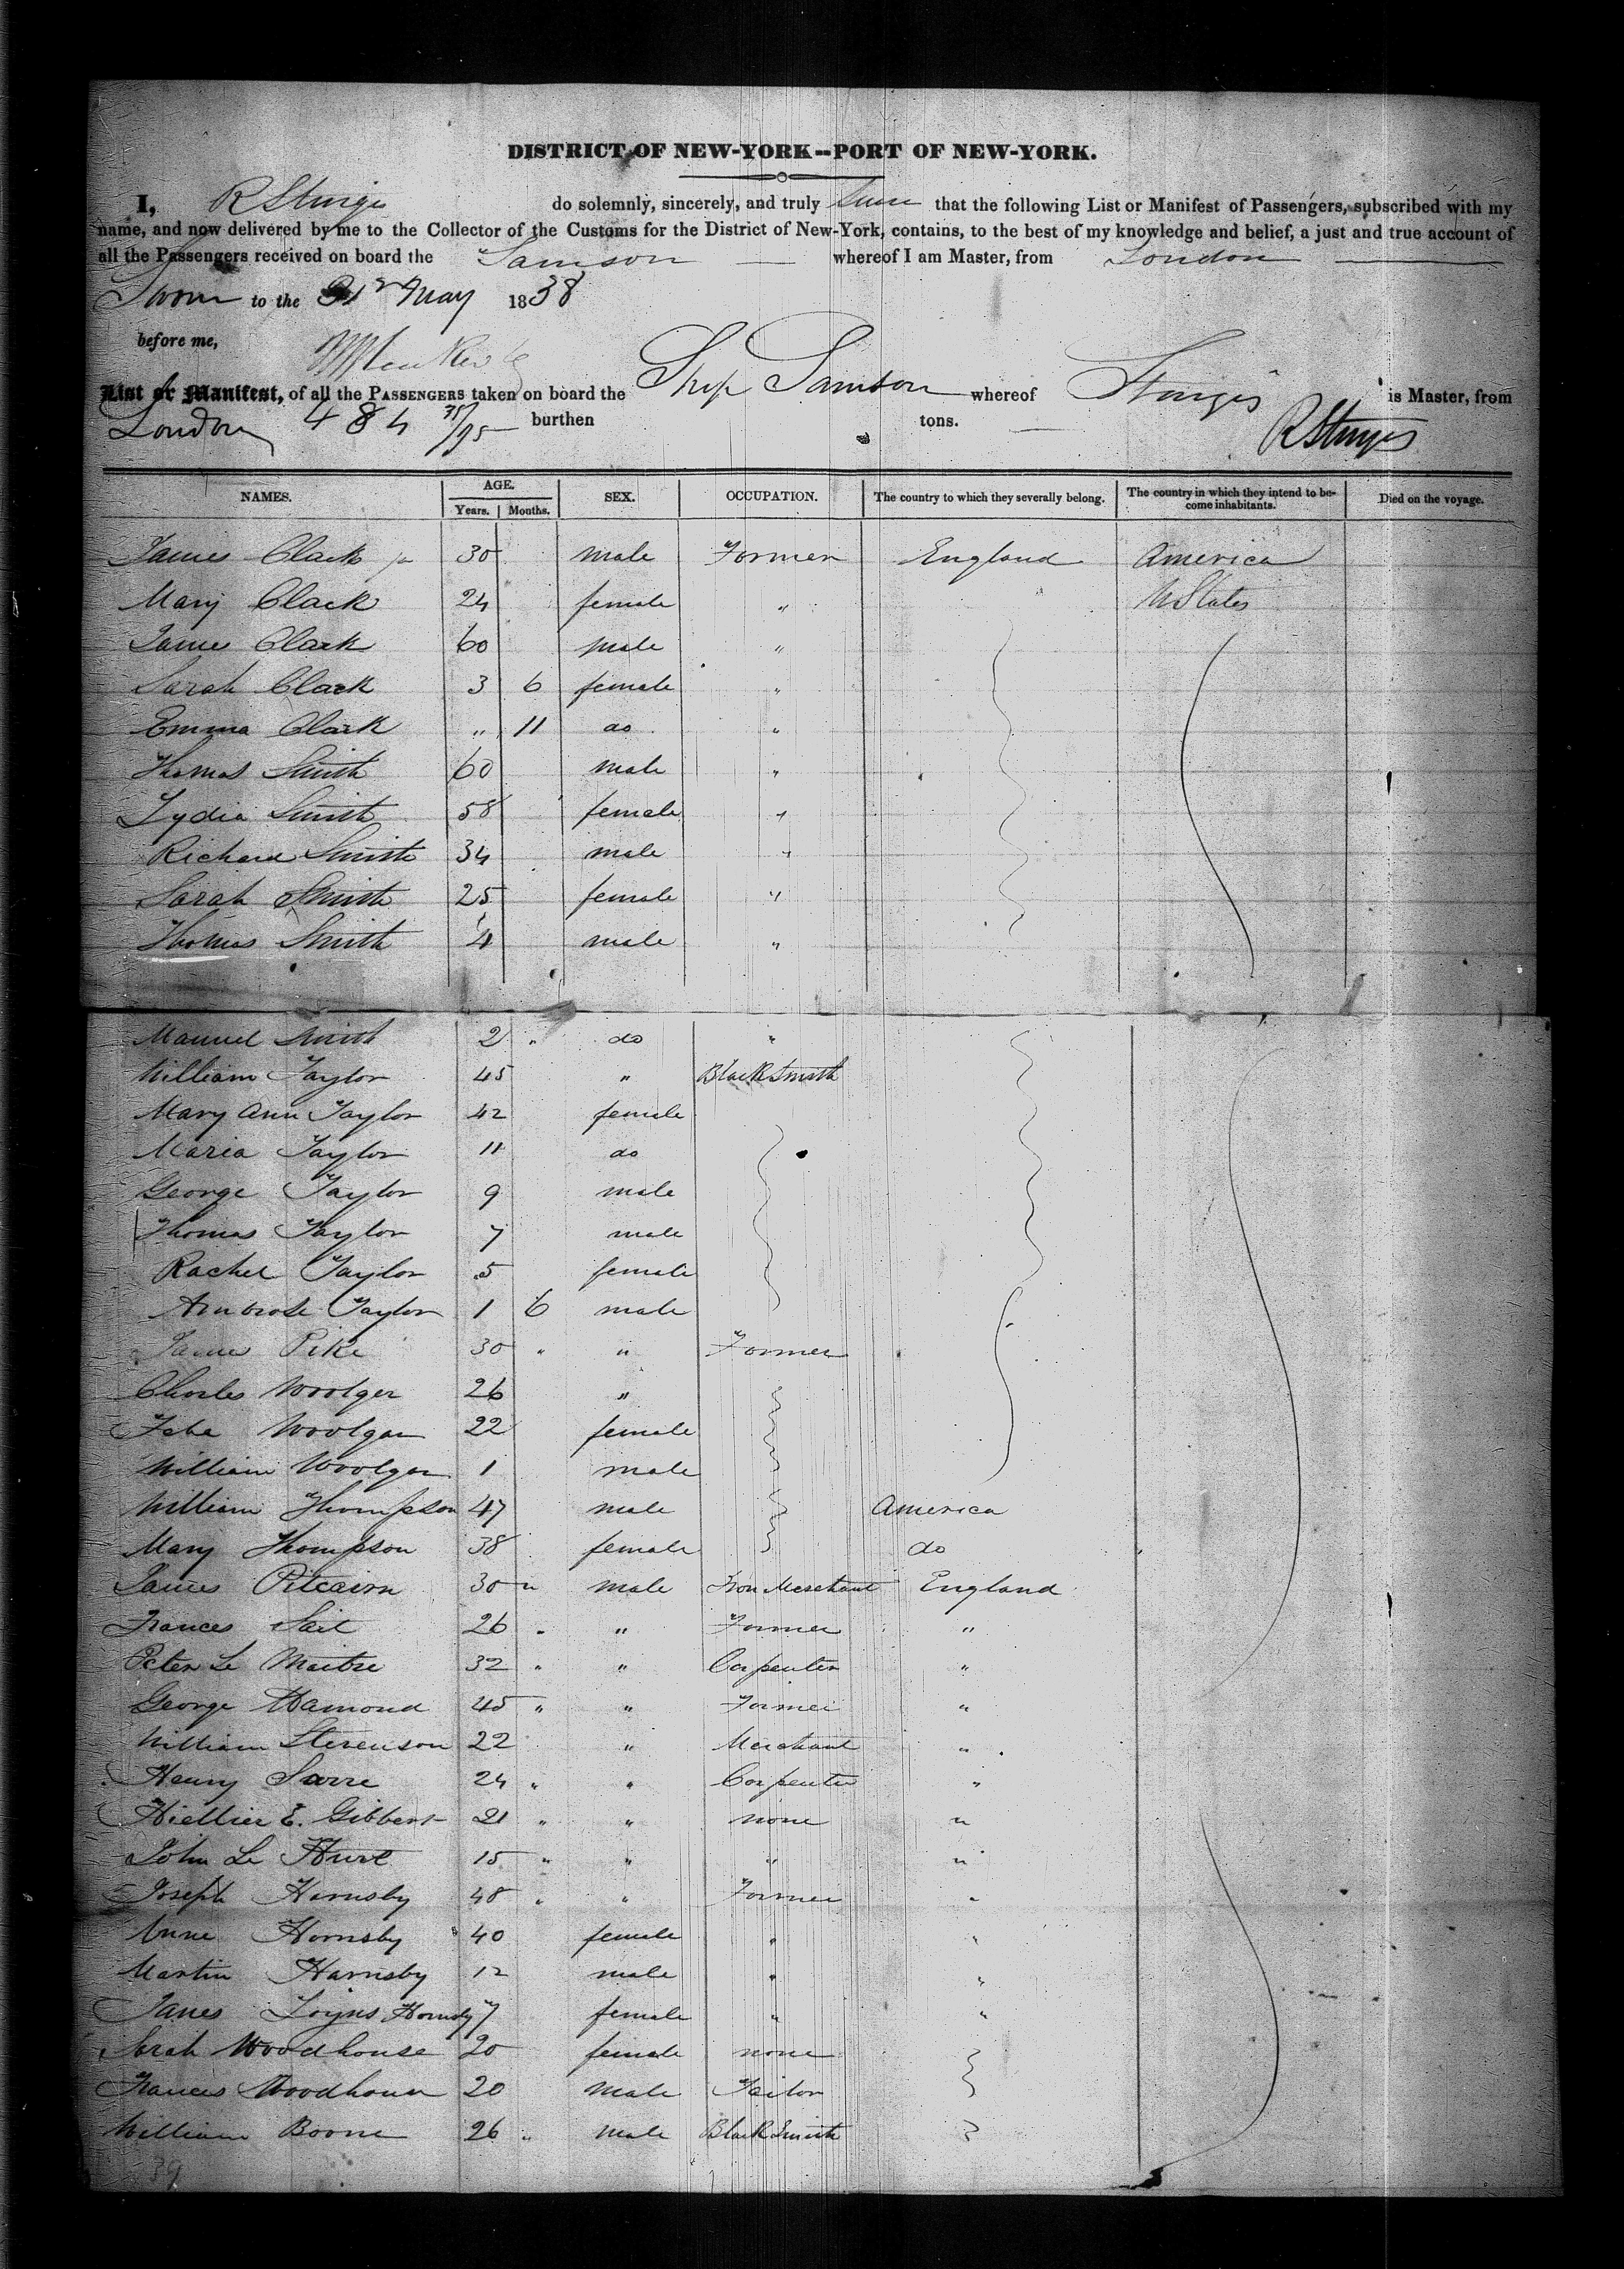 DISTRICT OF NEW-YORK--PORT OF NEW-YORK.
I, R Sturges do solemnly, sincerely, and truly that the following List or Manifest of Passengers, subscribed with my
name, and now delivered by me to the Collector of the Customs for the District of New-York, contains, to the best of my knowledge and belief, a just and true account of
all the Passengers received on board the Samson whereof I am Master, from London
Sworn to the 31 May 1838
before me,
List or Manifest, of all the PASSENGERS taken on board the Ship Samson whereof Sturges is Master, from
London 484 35/95 burthen tons. R Sturges
NAMES. AGE. SEX. OCCUPATION. The country to which they severally belong. The country in which they intend to become inhabitants. Died on the voyage.
Years. Months.
James Clark 30 male Farmer England America
Mary Clark 24 female " U States
James Clark 60 male "
Sarah Clark 3 6 female "
Emma Clark " 11 do "
Thomas Smith 60 male "
Lydia Smith 58 female "
Richard Smith 34 male "
Sarah Smith 25 female "
Thomas Smith 4 male "
Manuel Smith 2 " do "
William Taylor 45 " Black Smith
Mary Ann Taylor 42 female
Maria Taylor 11 do
George Taylor 9 male
Thomas Taylor 7 male
Rachel Taylor 5 female
Ambrose Taylor 1 6 male
James Pike 30 " " Farmer
Charles Woolger 26 "
Woolgar 22 female
William Woolgar 1 male
William Thompson 47 male America
Mary Thompson 38 female do
James Pitcairn 30 " male Iron Merchant England
Frances Sait 26 " " Farmer "
Peter Le Maitre 32 " " Carpenter "
George Hamond 45 " " Farmer "
William Stevenson 22 " Merchant "
Henry Sarre 24 " " Carpenter "
E. Gibbert 21 " " none "
John Le 15 " " " "
Joseph Hornsby 48 " " Farmer "
Anne Hornsby 40 female " "
Martin Hornsby 12 male " "
Janes Loyns Hornsby 7 female " "
Sarah Woodhouse 20 female none
Frances Woodhouse 20 male Tailor
William Boorne 26 " male Black Smith
39